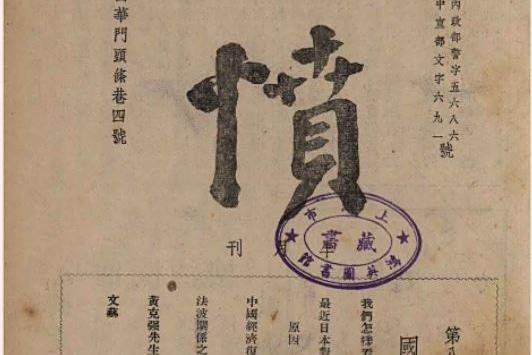 內政部警字五六八六
中宣部文字六九一
號
憤
刊
華門頭條巷四號
上海市
藏書
鴻英圖書館
第
國
我們怎樣看
最近日本對
原因
中國經濟復
法波關係之
黃克強先生
文藝